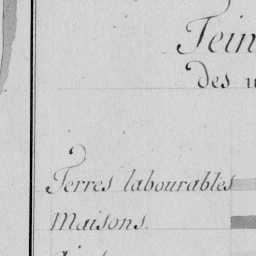 Tein
des
Terres labourables
Maisons.